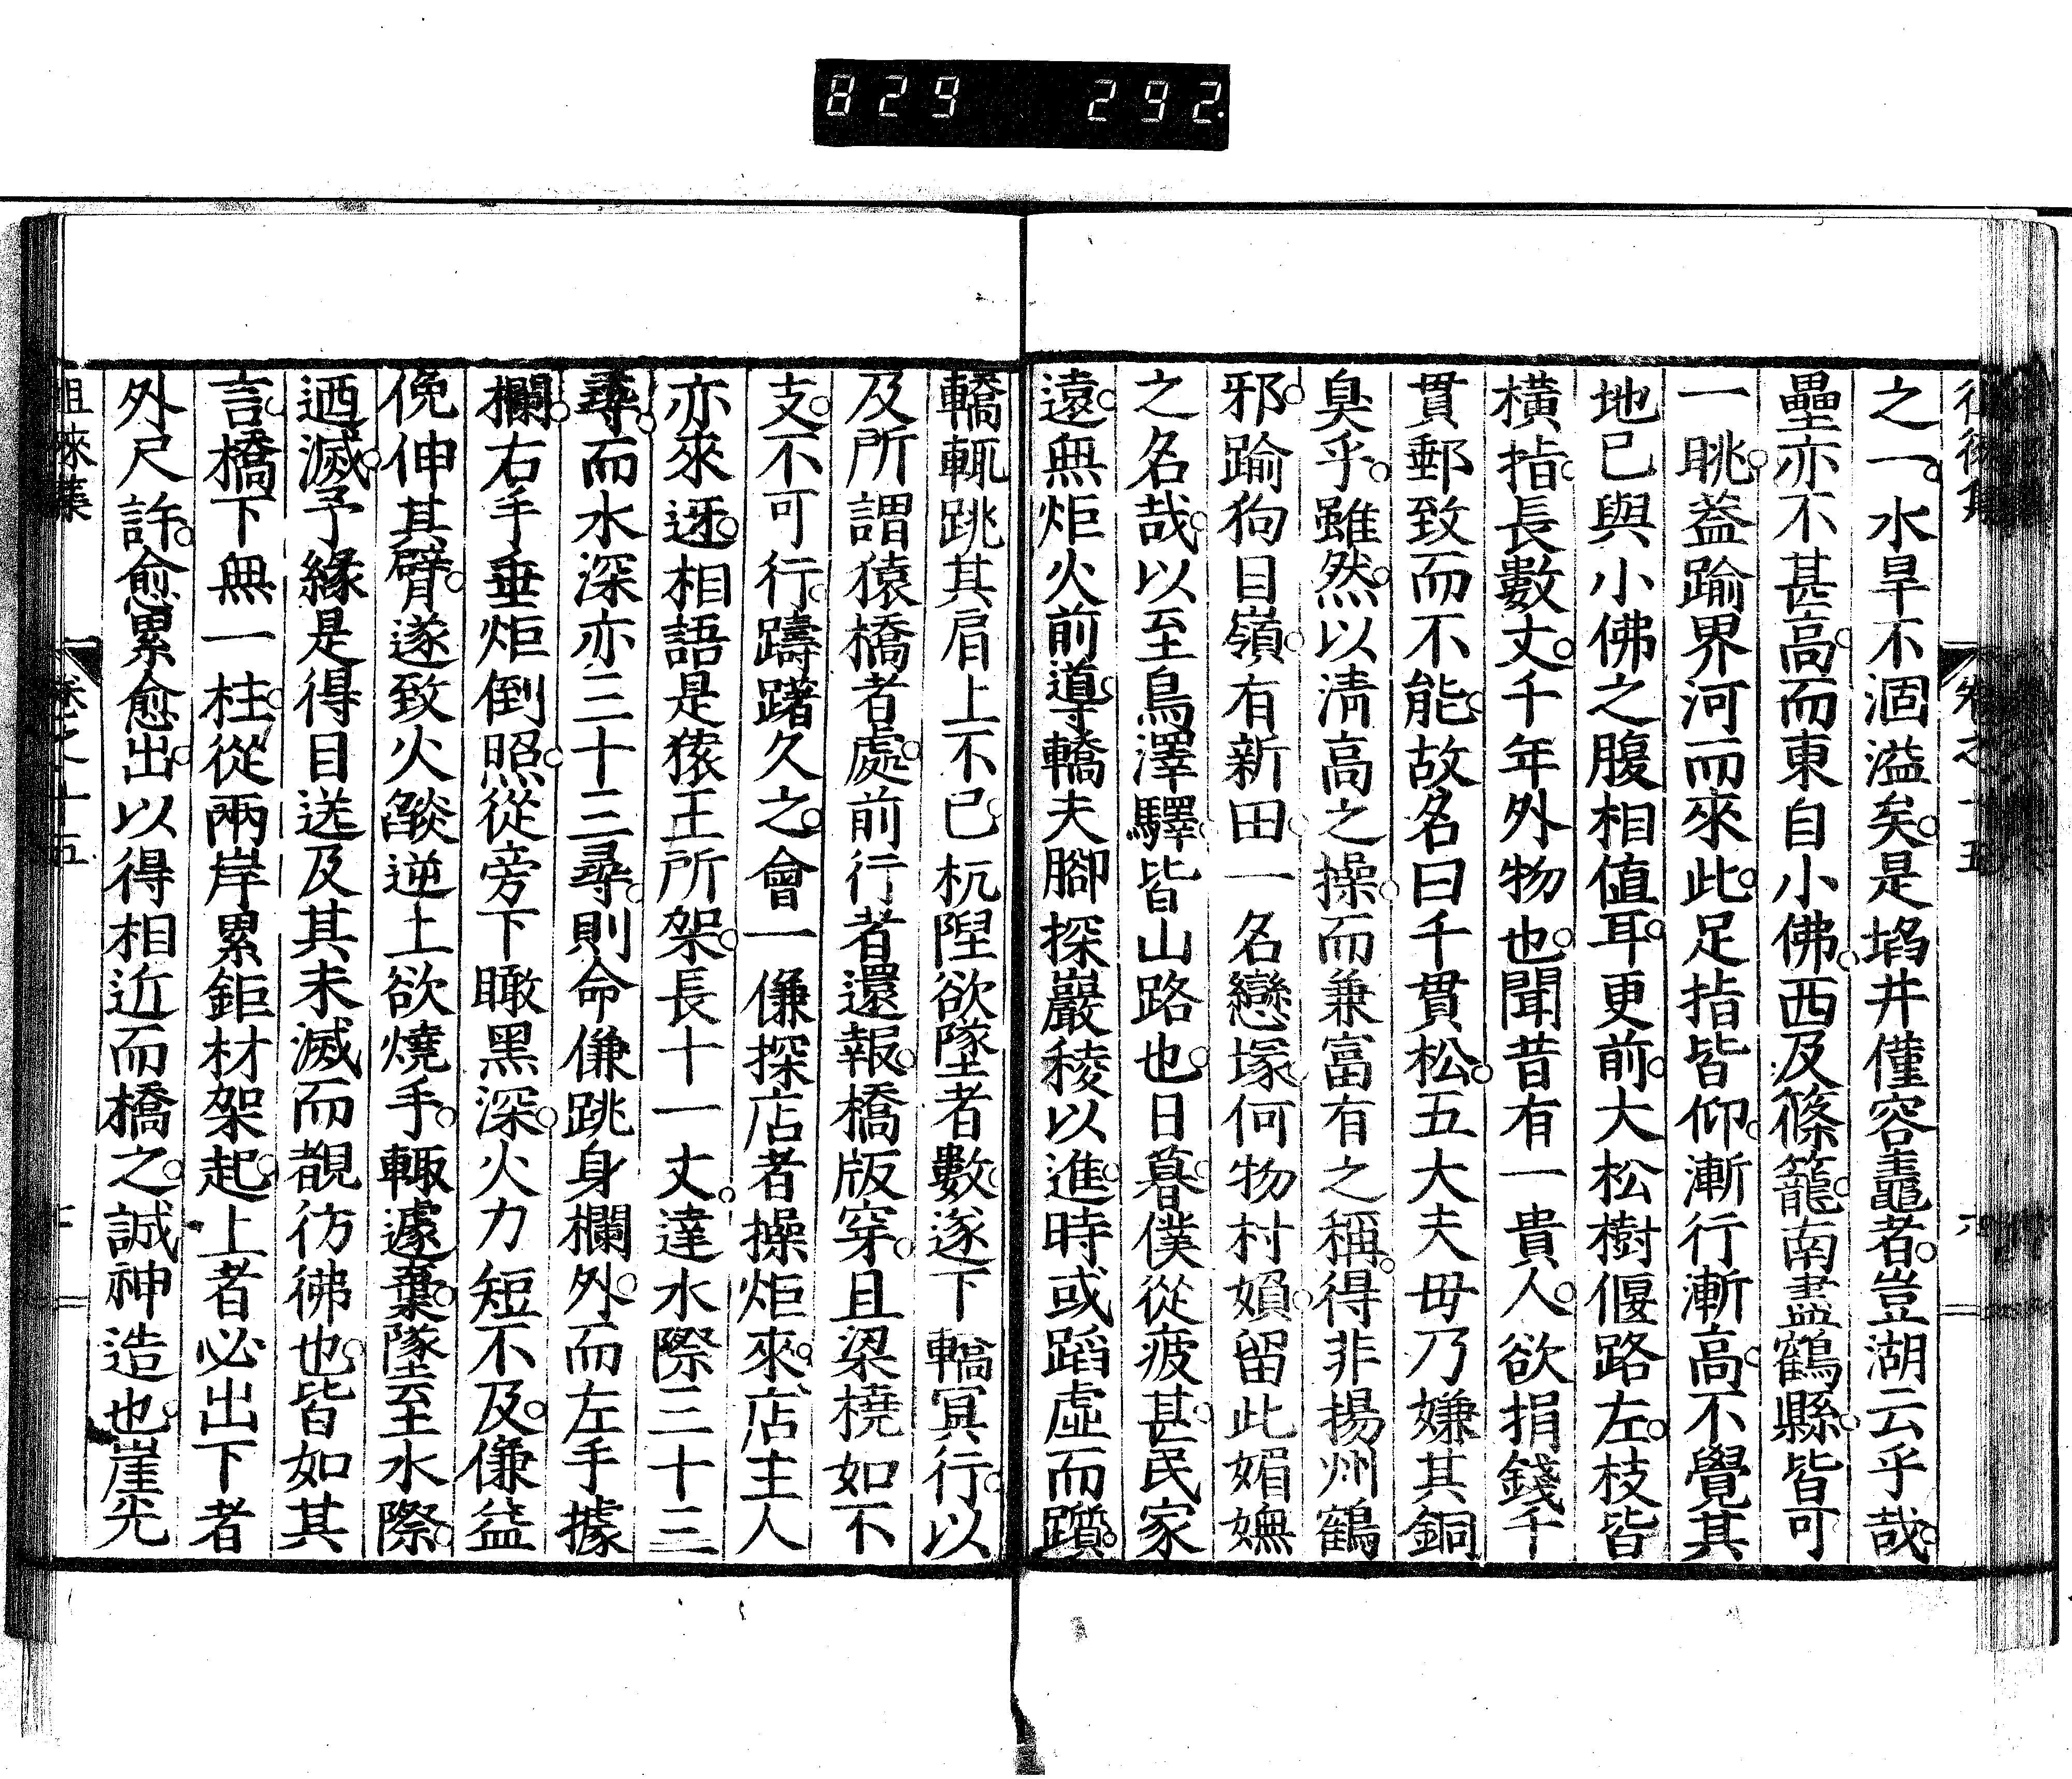 829 292.
之一。水旱不涸溢矣。是埳井僅容鼃者。豈湖云乎哉。
壘亦不甚高。而東自小佛。西及篠籠。南盡鶴縣。皆可
一眺。蓋踰界河而來此。足指皆仰。漸行漸高。不覺其
地已與小佛之腹相値耳。更前。大松樹偃路左。枝皆
橫指。長數丈。千年外物也。聞昔有一貴人。欲捐錢千
貫郵致而不能。故名曰千貫松。五大夫毋乃嫌其銅
臭乎。雖然。以淸高之操。而兼富有之稱。得非揚州鶴
邪。踰狗目嶺。有新田。一名戀塚。何物村嬪。留此媚嫵
之名哉。以至鳥澤驛。皆山路也。日暮。僕從疲甚。民家
遠。無炬火前導。轎夫腳探巖稜以進。時或蹈虛而躓。
轎輒跳其肩上不已。杌隉欲墜者數。遂下轎冥行。以
及所謂猿橋者處。前行者還報。橋版穿。且梁橈如不
支。不可行。躊躇久之。會一傔探店者操炬來。店主人
亦來迓。相語是猿王所架。長十一丈。達水際三十三
尋。而水深亦三十三尋。則命傔跳身欄外。而左手據
欄。右手垂炬倒照。從旁下瞰黑深。火力短不及。傔益
俛伸其臂。遂致火燄逆上欲燒手。輙遽棄。墜至水際。
迺滅。予緣是得目送。及其未滅而覩彷彿也。皆如其
言。橋下無一柱。從兩岸累鉅材架起。上者必出下者
外尺許。愈累愈出。以得相近而橋之。誠神造也。崖光
徂徠集 卷之十五